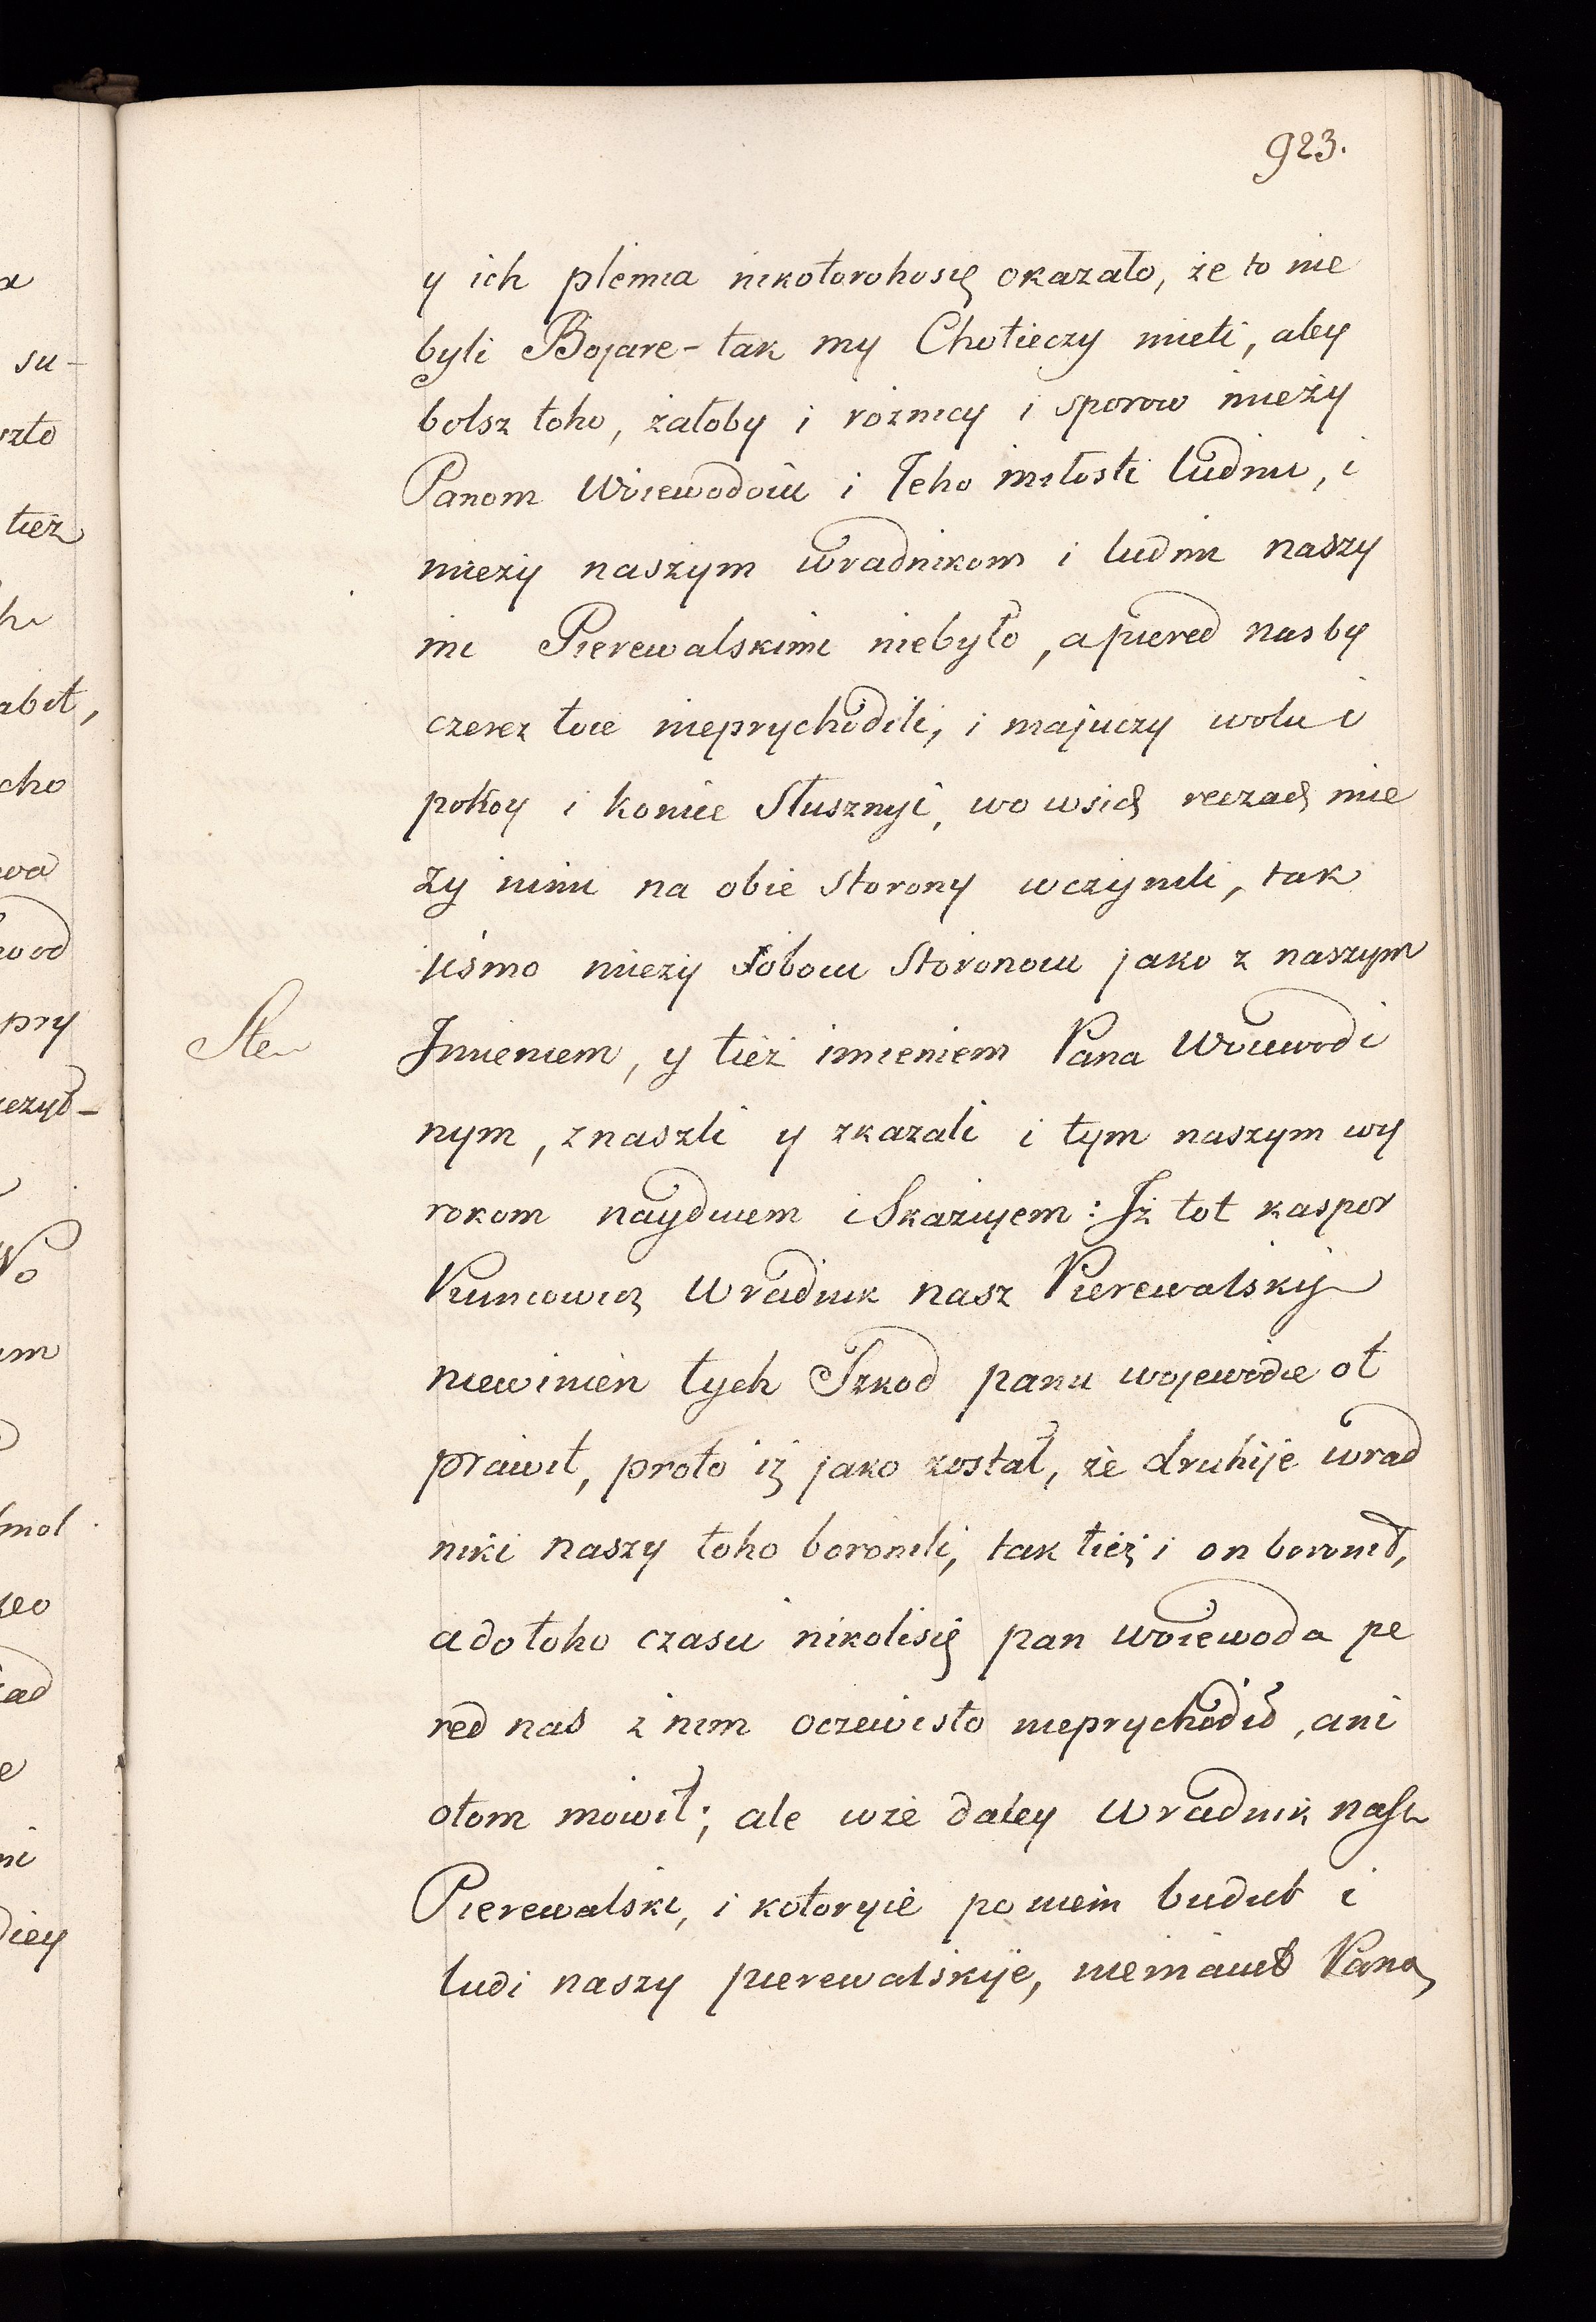 923.
y ich plemia nikotorohosię okazało, że to nie
byli Bojare - tak my Chotieczy mieti, abey
bolsz toho, żałoby i rożnicy i sporow mieży
Panom Woiewodoiu i Jeho miłosti ludmi, i
mieży naszym wradnikom i ludmi naszy
mi Pierewalskimi niebyło, a piered nas by
czerez toie nieprychodili, i majuczy wolu i
pokoy i koniec Słusznyi, wo wsich reczach mie
ży nimi na obie Storony wczynili, tak
jiśmo mieży Sobou Storonou jako z naszym
Imieniem, y tież imieniem Pana Woiewodi
nym, znaszli y zkazali i tym naszym wy
rokom naydujem i Skazujem: Iż tot kaspor
Kuncowicz Wradnik nasz Pierewalskij
niewinien tych Szkod panu wojewodie ot
prawit, proto iż jako został, że druhije wrad
niki naszy toho boronili, tak tież i on boronił,
a do toho czasu nikolisię pan woiewoda pe
red nas z nim oczewisto nieprychodił, ani
otom mowił; ale wże daley Wradnik nasz
Pierewalski, i kotoryie po niem budut i
ludi naszy pierewalskije, nieimaiut Pana